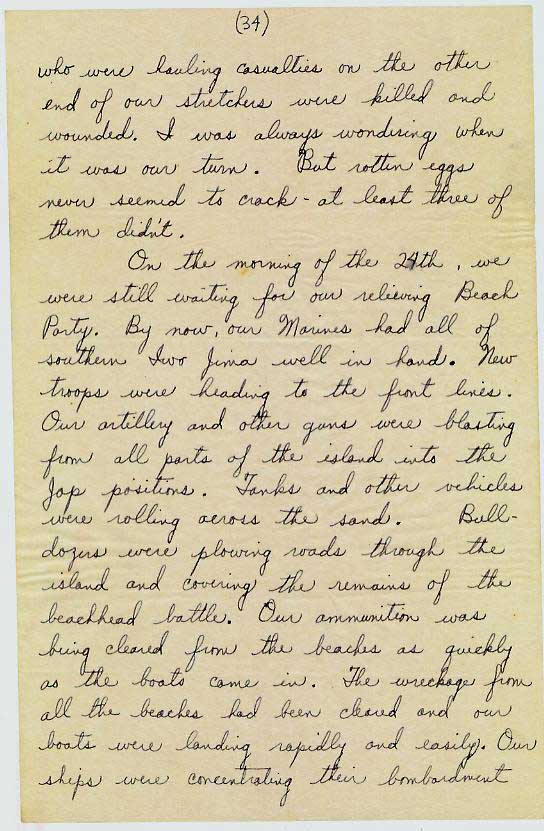 (34)
who were hauling casualties on the other
end of our stretchers were killed and
wounded. I was always wondering when
it was our turn. But rotten eggs
never seemed to crack - at least three of
them didn't.
On the morning of the 24th, we
were still waiting for our relieving Beach
Party. By now, our Marines had all of
southern Iwo Jima well in hand. New
troops were heading to the front lines.
Our artillery and other guns were blasting
from all parts of the island into the
Jap positions. Tanks and other vehicles
were rolling across the sand. Bull-
dozers were plowing roads through the
island and covering the remains of the
beachhead battle. Our ammunition was
being cleared from the beaches as quickly
as the boats came in. The wreckage from
all the beaches had been cleared and our
boats were landing rapidly and easily. Our
ships were concentrating their bombardment